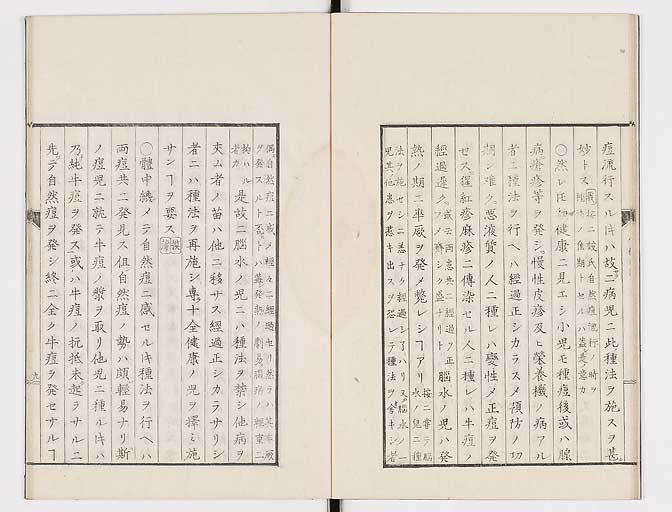 痘流行スル時ハ故ニ病児ニ此種法ヲ施スヲ甚
妙トス
〇然レ𪜈健康ニ見エシ小児モ種痘後或ハ腺
病瘡疹等ヲ発シ慢性皮疹及ヒ栄養機ノ病アル
者ニ種法ヲ行ヘハ経過正シカラスメ預防ノ功
期シ難ク悪液質ノ人ニ種レハ変性メ正痘ヲ発
セス猩紅疹麻疹ニ傳染セル人ニ種レハ牛痘ノ
経過遅クメ
脳水ノ児ハ発
熱ノ期ニ卒厥ヲ発メ斃レシヿアリ
法ヲ施セシニ恙ナク経過シ了ハリ又脳水ノ一
児其他患ヲ惹キ出スヲ恐レテ種法ヲ舎キシ者
偶自然痘ニ感メ軽々ニ経過セリ然ラハ其卒厥
ヲ発スルト否トハ蓋発熱ノ劇易脳病ノ軽重ニ
拘ハル者カ
是故ニ脳水ノ児ニハ種法ヲ禁シ他病ヲ
夾ム者ノ苗ハ他ニ移サス経過正シカラサリシ
者ニハ種法ヲ再施シ専ラ十全健康ノ児ヲ擇ミ施
サンヿヲ要ス
〇體中潜メテ自然痘ニ感セル時種法ヲ行ヘハ
両痘共ニ発見ス但自然痘ノ勢ハ頗軽易ナリ斯
ノ痘児ニ就テ牛痘ノ漿ヲ取リ他児ニ種ル時ハ
乃純牛痘ヲ発ス或ハ牛痘ノ抗抵未起ラサルニ
先テ自然痘ヲ発シ終ニ全ク牛痘ヲ発セサルヿ
九